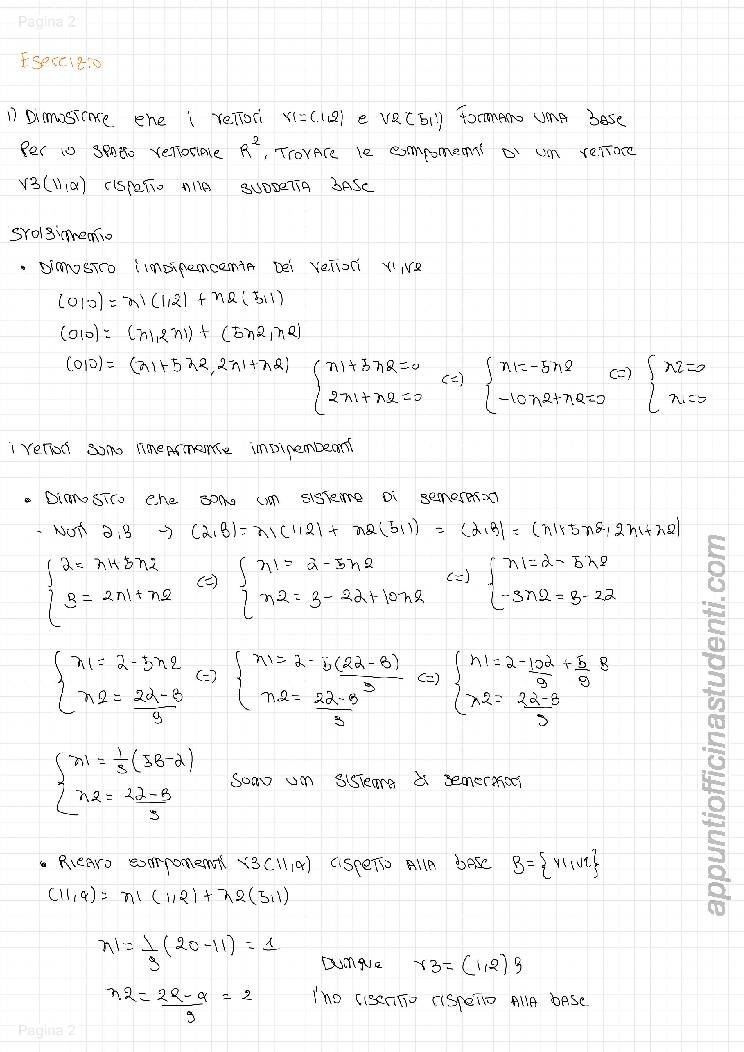 Pagina 2
Esercizio
1) Dimostrare che i vettori v1=(1,2) e v2(5,1) formano una base
per lo spazio vettoriale R², trovare le componenti di un vettore
v3(11,4) rispetto alla suddetta base
svolgimento
• Dimostro l'indipendenza dei vettori v1,v2
(0,0) = λ1(1,2) + λ2(5,1)
(0,0) = (λ1,2λ1) + (5λ2,λ2)
(0,0) = (λ1+5λ2, 2λ1+λ2) { λ1+5λ2=0 <=> { λ1=-5λ2 <=> { λ2=0
2λ1+λ2=0 -10λ2+λ2=0 λ1=0
i vettori sono linearmente indipendenti
• Dimostro che sono un sistema di generatori
- Noti α,β → (α,β) = λ1(1,2) + λ2(5,1) = (α,β) = (λ1+5λ2, 2λ1+λ2)
{ α = λ1+5λ2 <=> { λ1 = α-5λ2 <=> { λ1=α-5λ2
β = 2λ1+λ2 λ2 = β-2α+10λ2 -9λ2=β-2α
{ λ1 = α-5λ2 <=> { λ1 = α-5(2α-β)/9 <=> { λ1=α-10α/9+5/9 β
λ2 = 2α-β/9 λ2 = 2α-β/9 λ2 = 2α-β/9
{ λ1 = 1/9(5β-α)
λ2 = 2α-β/9 sono un sistema di generatori
• Ricavo componenti v3(11,4) rispetto alla base B={v1,v2}
(11,4) = λ1(1,2)+λ2(5,1)
λ1=1/9(20-11)=1
Dunque v3=(1,2)B
λ2=22-4/9=2 l'ho riscritto rispetto alla base
appuntiofficinastudenti.com
Pagina 2